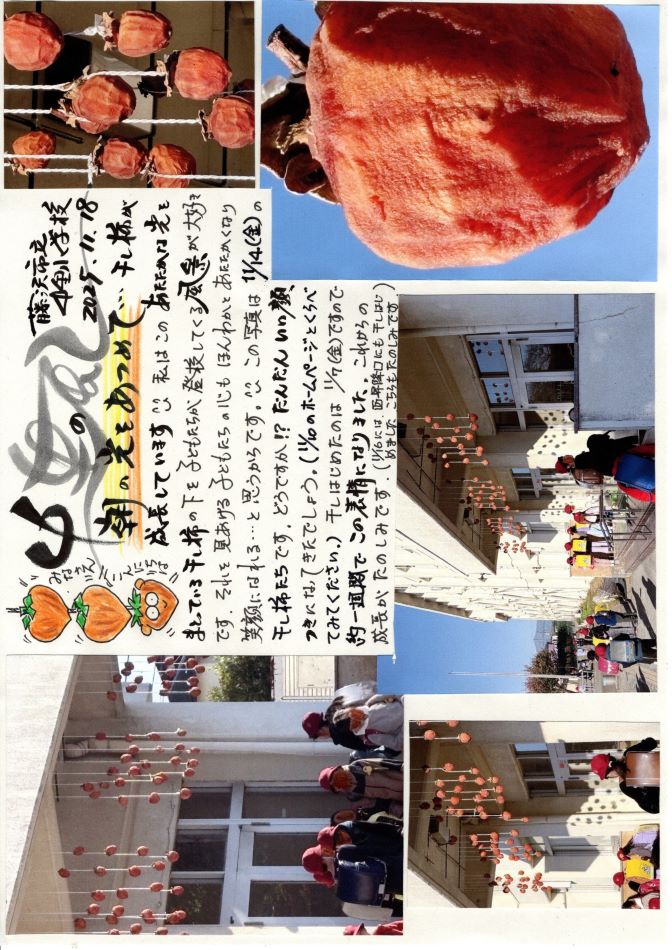 藤沢市立
中里小学校
2025.11.18
中里の風
朝の光をあつめて、干し柿が
成長しています♡ 私はこの あたたかな光を
まとっている干し柿の下を子どもたちが登校してくる風景が大好き
です。それを見あげる子どもたちの心も ほんわかとあたたかくなり
笑顔になれる…と思うからです。♡ この写真は 11/14(金)の
干し柿たちです。どうですか!? だんだんいい顔
つきになってきたでしょう。(11/10のホームページとくらべ
てみてください。) 干しはじめたのは 11/7(金)ですので
約一週間で この表情になりました。これからの
成長が たのしみです。(11/16には 西昇降口にも干しはじ
めました。こちらもたのしみです)
みなさん
こんにちは